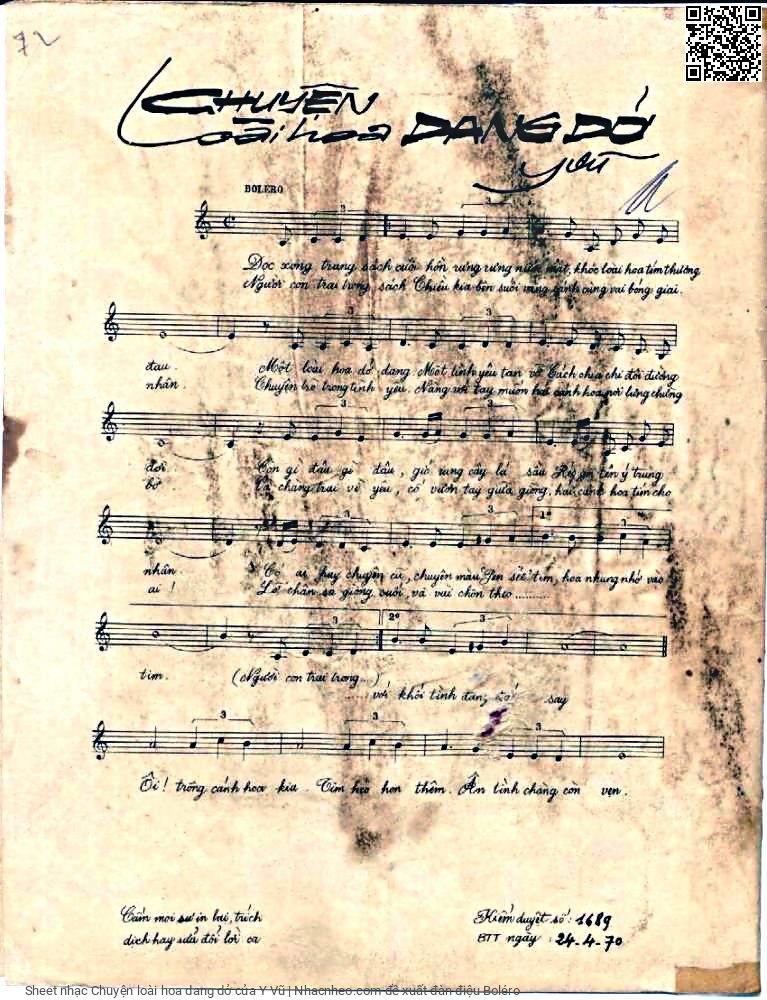 72
CHUYỆN
Loài hoa DANG DỞ
Y Vũ
BOLERO
3 3
Đọc xong trang sách cuối hồn rưng rưng nước mắt, khóc loài hoa tím thương
Người con trai trong sách Chiều kia bên suối vắng sánh cùng vai bóng giai.
3 3
đau. Một loài hoa dở dang. Một tình yêu tan vỡ Cách chia chi đôi đường
nhân. Chuyện trò trong tình yêu. Nàng với tay muốn hái cánh hoa nơi lưng chừng
3 3
đời. Còn gì đâu gì đâu, gió rung cây lá sầu tên ý trung
bờ chàng trai vì yêu, cố vươn tay giữa giòng, hái cành hoa tím cho
3 3 1º 3
nhân. Có ai hay chuyện cũ, chuyện màu Pen sée tím, hoa nhung nhớ vào
ai ! Lỡ chân sa giòng suối, và vùi chôn theo..........
3 2º 3
tim. (Người con trai trong...)
......với khối tình đang say
3 3 3
Ôi ! trông cánh hoa kia. Tím héo hon thêm. Ân tình chẳng còn vẹn.
Cấm mọi sự in lại, trích
dịch hay sửa đổi lời ca
Kiểm duyệt số : 1689
BTT ngày : 24-4-70
Sheet nhạc Chuyện loài hoa dang dở của Y Vũ | Nhacnheo.com đề xuất đàn điệu Boléro